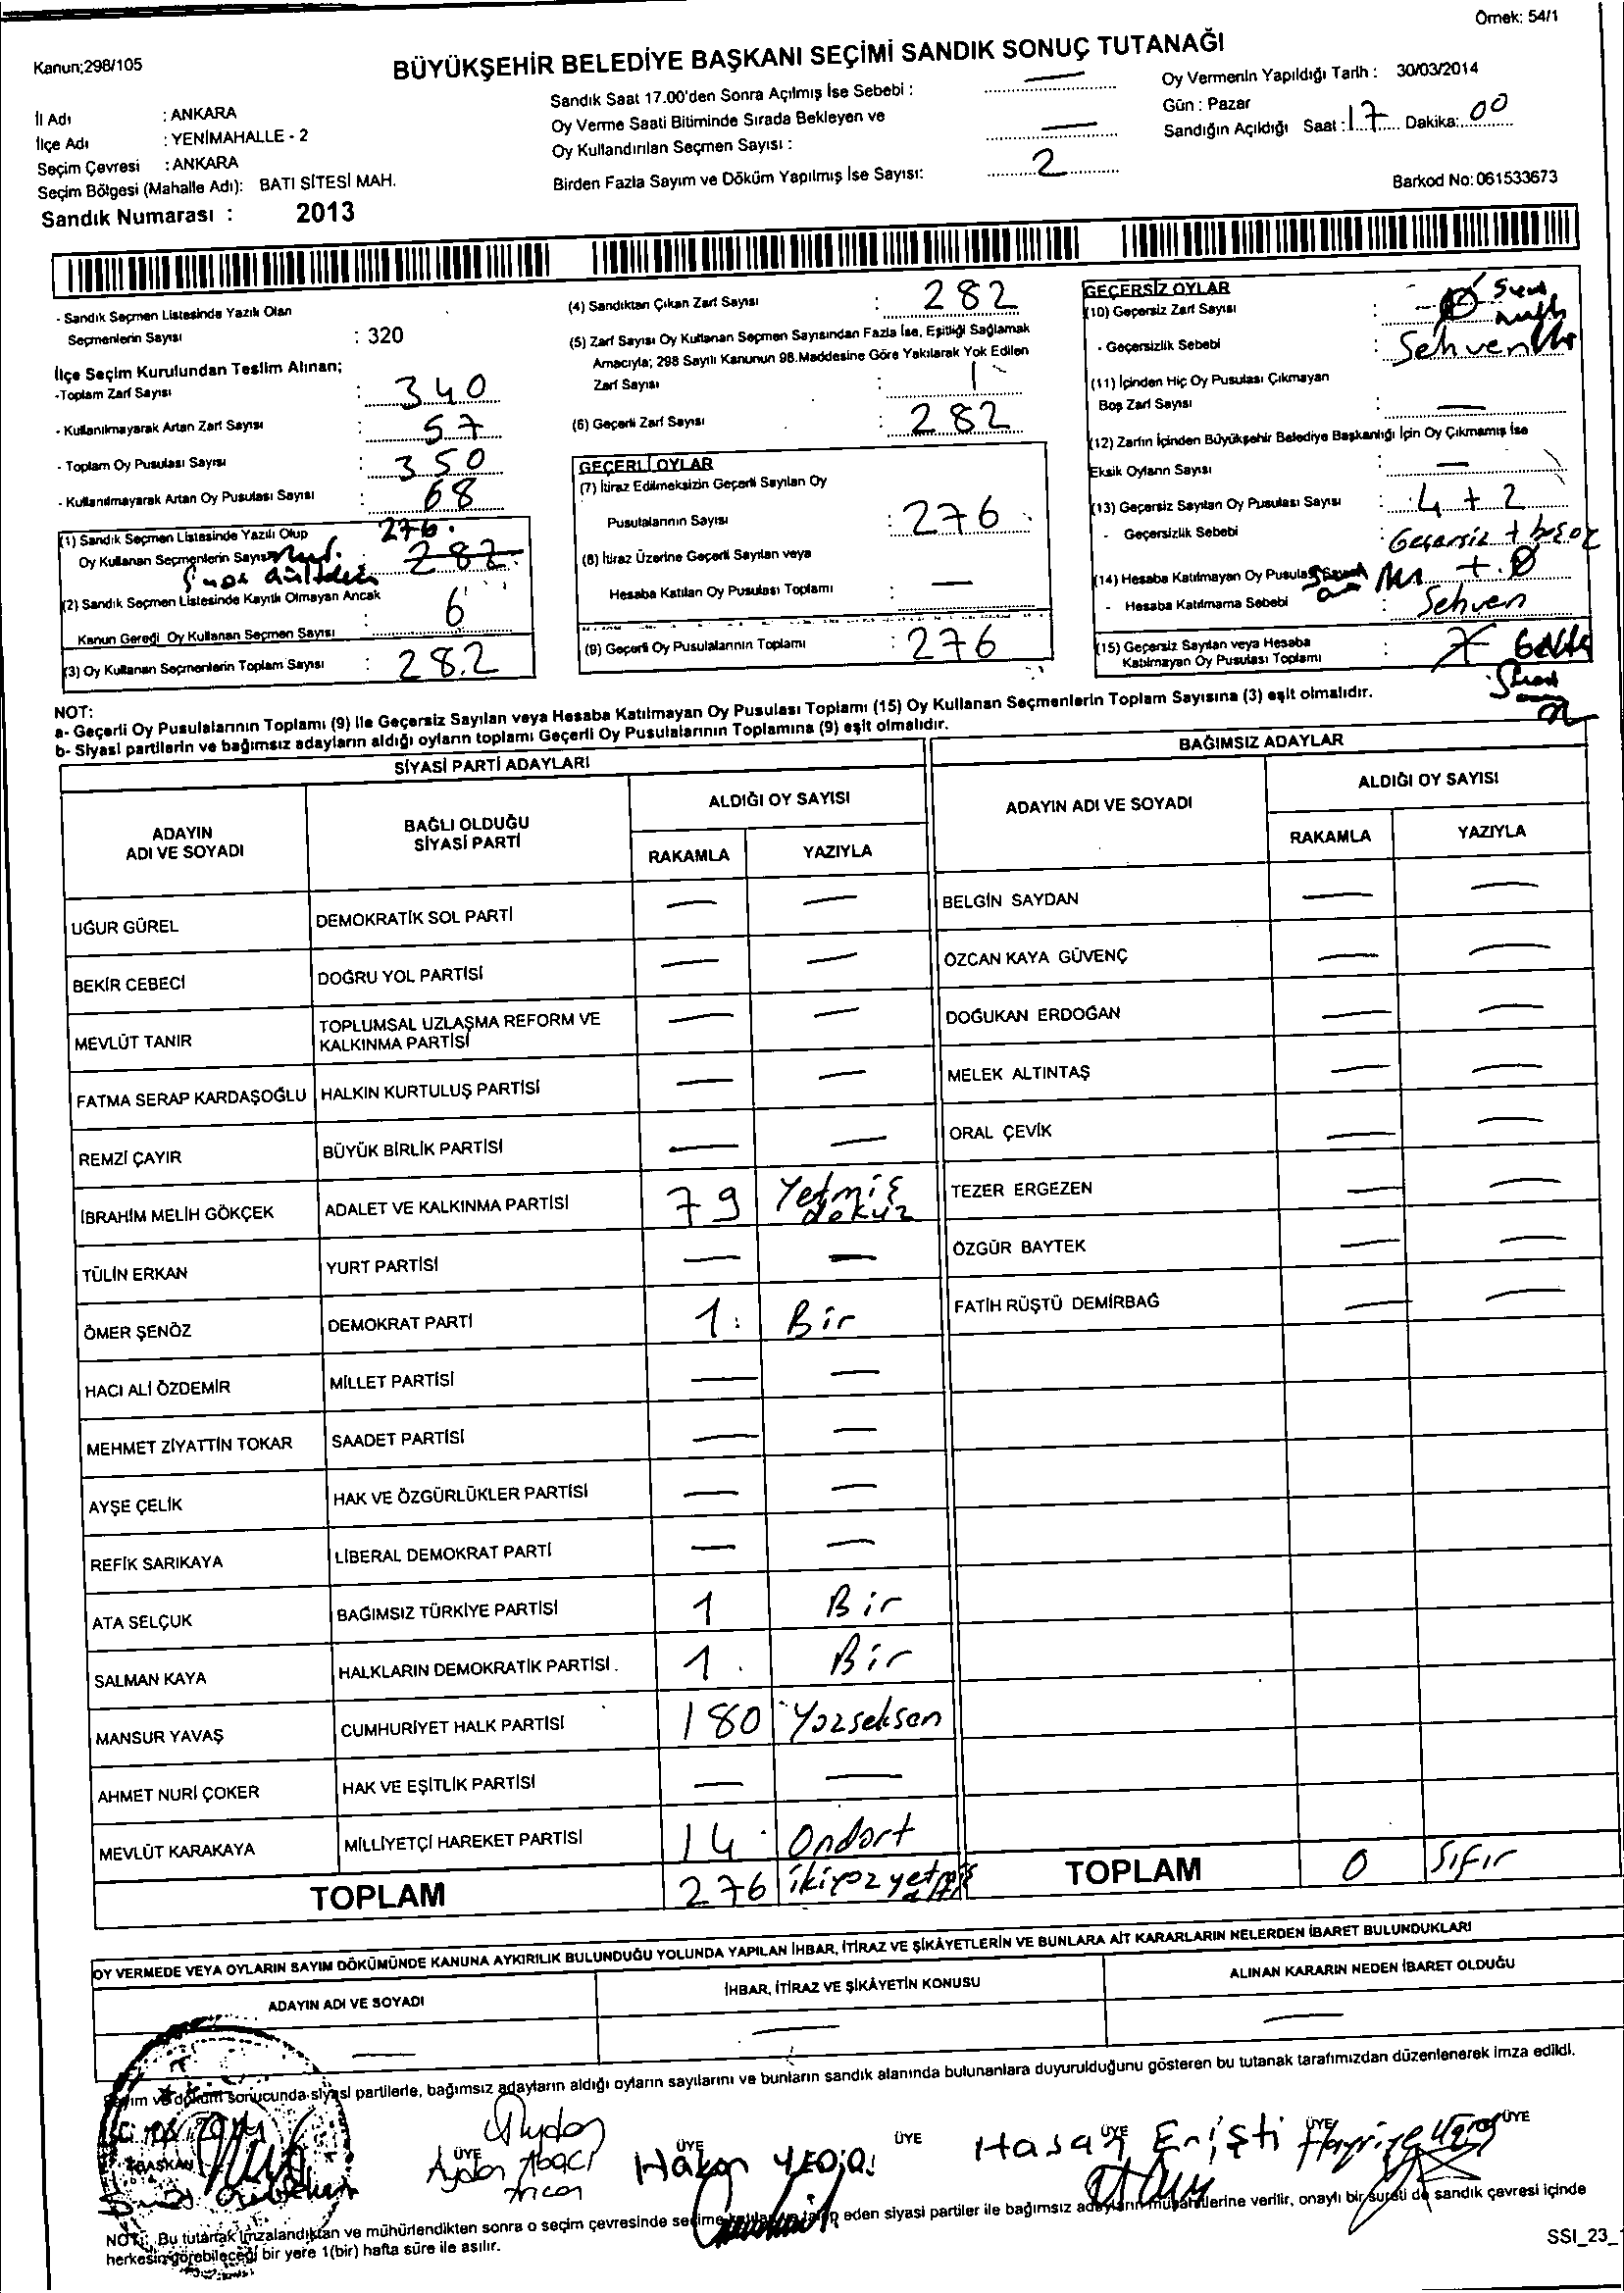 Örnek: 54/1
Kanun;298/105
BÜYÜKŞEHİR BELEDİYE BAŞKANI SEÇİMİ SANDIK SONUÇ TUTANAĞI
İl Adı : ANKARA
İlçe Adı : YENİMAHALLE - 2
Seçim Çevresi : ANKARA
Seçim Bölgesi (Mahalle Adı): BATI SİTESİ MAH.
Sandık Numarası : 2013
Sandık Saat 17.00'den Sonra Açılmış İse Sebebi : —
Oy Verme Saati Bitiminde Sırada Bekleyen ve
Oy Kullandırılan Seçmen Sayısı : —
Birden Fazla Sayım ve Döküm Yapılmış İse Sayısı: 2
Oy Vermenin Yapıldığı Tarih : 30/03/2014
Gün : Pazar
Sandığın Açıldığı Saat : 17 Dakika: 00
Barkod No: 061533673
- Sandık Seçmen Listesinde Yazılı Olan
Seçmenlerin Sayısı : 320
İlçe Seçim Kurulundan Teslim Alınan;
-Toplam Zarf Sayısı : 340
- Kullanılmayarak Artan Zarf Sayısı : 57
- Toplam Oy Pusulası Sayısı : 350
- Kullanılmayarak Artan Oy Pusulası Sayısı : 68
(1) Sandık Seçmen Listesinde Yazılı Olup 276
Oy Kullanan Seçmenlerin Sayısı 282
(2) Sandık Seçmen Listesinde Kayıtlı Olmayan Ancak
Kanun Gereği Oy Kullanan Seçmen Sayısı 6
(3) Oy Kullanan Seçmenlerin Toplam Sayısı : 282
(4) Sandıktan Çıkan Zarf Sayısı : 282
(5) Zarf Sayısı Oy Kullanan Seçmen Sayısından Fazla İse, Eşitliği Sağlamak
Amacıyla; 298 Sayılı Kanunun 98.Maddesine Göre Yakılarak Yok Edilen
Zarf Sayısı : 1
(6) Geçerli Zarf Sayısı : 282
GEÇERLİ OYLAR
(7) İtiraz Edilmeksizin Geçerli Sayılan Oy
Pusulalarının Sayısı : 276
(8) İtiraz Üzerine Geçerli Sayılan veya
Hesaba Katılan Oy Pusulası Toplamı : —
(9) Geçerli Oy Pusulalarının Toplamı : 276
GEÇERSİZ OYLAR
(10) Geçersiz Zarf Sayısı :
- Geçersizlik Sebebi : Sehven
(11) İçinden Hiç Oy Pusulası Çıkmayan
Boş Zarf Sayısı : —
(12) Zarfın İçinden Büyükşehir Belediye Başkanlığı İçin Oy Çıkmamış İse
Eksik Oyların Sayısı : —
(13) Geçersiz Sayılan Oy Pusulası Sayısı : 4 + 2
- Geçersizlik Sebebi : Geçersiz +
(14) Hesaba Katılmayan Oy Pusulası
- Hesaba Katılmama Sebebi : Sehven
(15) Geçersiz Sayılan veya Hesaba
Katılmayan Oy Pusulası Toplamı :
NOT:
a- Geçerli Oy Pusulalarının Toplamı (9) ile Geçersiz Sayılan veya Hesaba Katılmayan Oy Pusulası Toplamı (15) Oy Kullanan Seçmenlerin Toplam Sayısına (3) eşit olmalıdır.
b- Siyasi partilerin ve bağımsız adayların aldığı oyların toplamı Geçerli Oy Pusulalarının Toplamına (9) eşit olmalıdır.
SİYASİ PARTİ ADAYLARI
ADAYIN ADI VE SOYADI BAĞLI OLDUĞU SİYASİ PARTİ ALDIĞI OY SAYISI
RAKAMLA YAZIYLA
UĞUR GÜREL DEMOKRATİK SOL PARTİ — —
BEKİR CEBECİ DOĞRU YOL PARTİSİ — —
MEVLÜT TANIR TOPLUMSAL UZLAŞMA REFORM VE KALKINMA PARTİSİ — —
FATMA SERAP KARDAŞOĞLU HALKIN KURTULUŞ PARTİSİ — —
REMZİ ÇAYIR BÜYÜK BİRLİK PARTİSİ — —
İBRAHİM MELİH GÖKÇEK ADALET VE KALKINMA PARTİSİ 79 Yetmiş dokuz
TÜLİN ERKAN YURT PARTİSİ — —
ÖMER ŞENÖZ DEMOKRAT PARTİ 1 Bir
HACI ALİ ÖZDEMİR MİLLET PARTİSİ — —
MEHMET ZİYATTİN TOKAR SAADET PARTİSİ — —
AYŞE ÇELİK HAK VE ÖZGÜRLÜKLER PARTİSİ — —
REFİK SARIKAYA LİBERAL DEMOKRAT PARTİ — —
ATA SELÇUK BAĞIMSIZ TÜRKİYE PARTİSİ 1 Bir
SALMAN KAYA HALKLARIN DEMOKRATİK PARTİSİ. 1 Bir
MANSUR YAVAŞ CUMHURİYET HALK PARTİSİ 180 Yüzseksen
AHMET NURİ ÇOKER HAK VE EŞİTLİK PARTİSİ — —
MEVLÜT KARAKAYA MİLLİYETÇİ HAREKET PARTİSİ 14 Ondört
TOPLAM 276 ikiyüz yetmiş
BAĞIMSIZ ADAYLAR
ADAYIN ADI VE SOYADI ALDIĞI OY SAYISI
RAKAMLA YAZIYLA
BELGİN SAYDAN — —
ÖZCAN KAYA GÜVENÇ — —
DOĞUKAN ERDOĞAN — —
MELEK ALTINTAŞ — —
ORAL ÇEVİK — —
TEZER ERGEZEN — —
ÖZGÜR BAYTEK — —
FATİH RÜŞTÜ DEMİRBAĞ — —
TOPLAM 0 Sıfır
OY VERMEDE VEYA OYLARIN SAYIM DÖKÜMÜNDE KANUNA AYKIRILIK BULUNDUĞU YOLUNDA YAPILAN İHBAR, İTİRAZ VE ŞİKÂYETLERİN VE BUNLARA AİT KARARLARIN NELERDEN İBARET BULUNDUKLARI
ADAYIN ADI VE SOYADI İHBAR, İTİRAZ VE ŞİKÂYETİN KONUSU ALINAN KARARIN NEDEN İBARET OLDUĞU
— — —
Sayım ve döküm sonucunda siyasi partilerle, bağımsız adayların aldığı oyların sayılarını ve bunların sandık alanında bulunanlara duyurulduğunu gösteren bu tutanak tarafımızdan düzenlenerek imza edildi.
BAŞKAN ÜYE ÜYE ÜYE ÜYE ÜYE ÜYE
Hasan Erişti
NOT: Bu tutanak imzalandıktan ve mühürlendikten sonra o seçim çevresinde seçime katılan ve talep eden siyasi partiler ile bağımsız adayların müşahitlerine verilir, onaylı bir sureti de sandık çevresi içinde
herkesin görebileceği bir yere 1(bir) hafta süre ile asılır.
SSI_23_